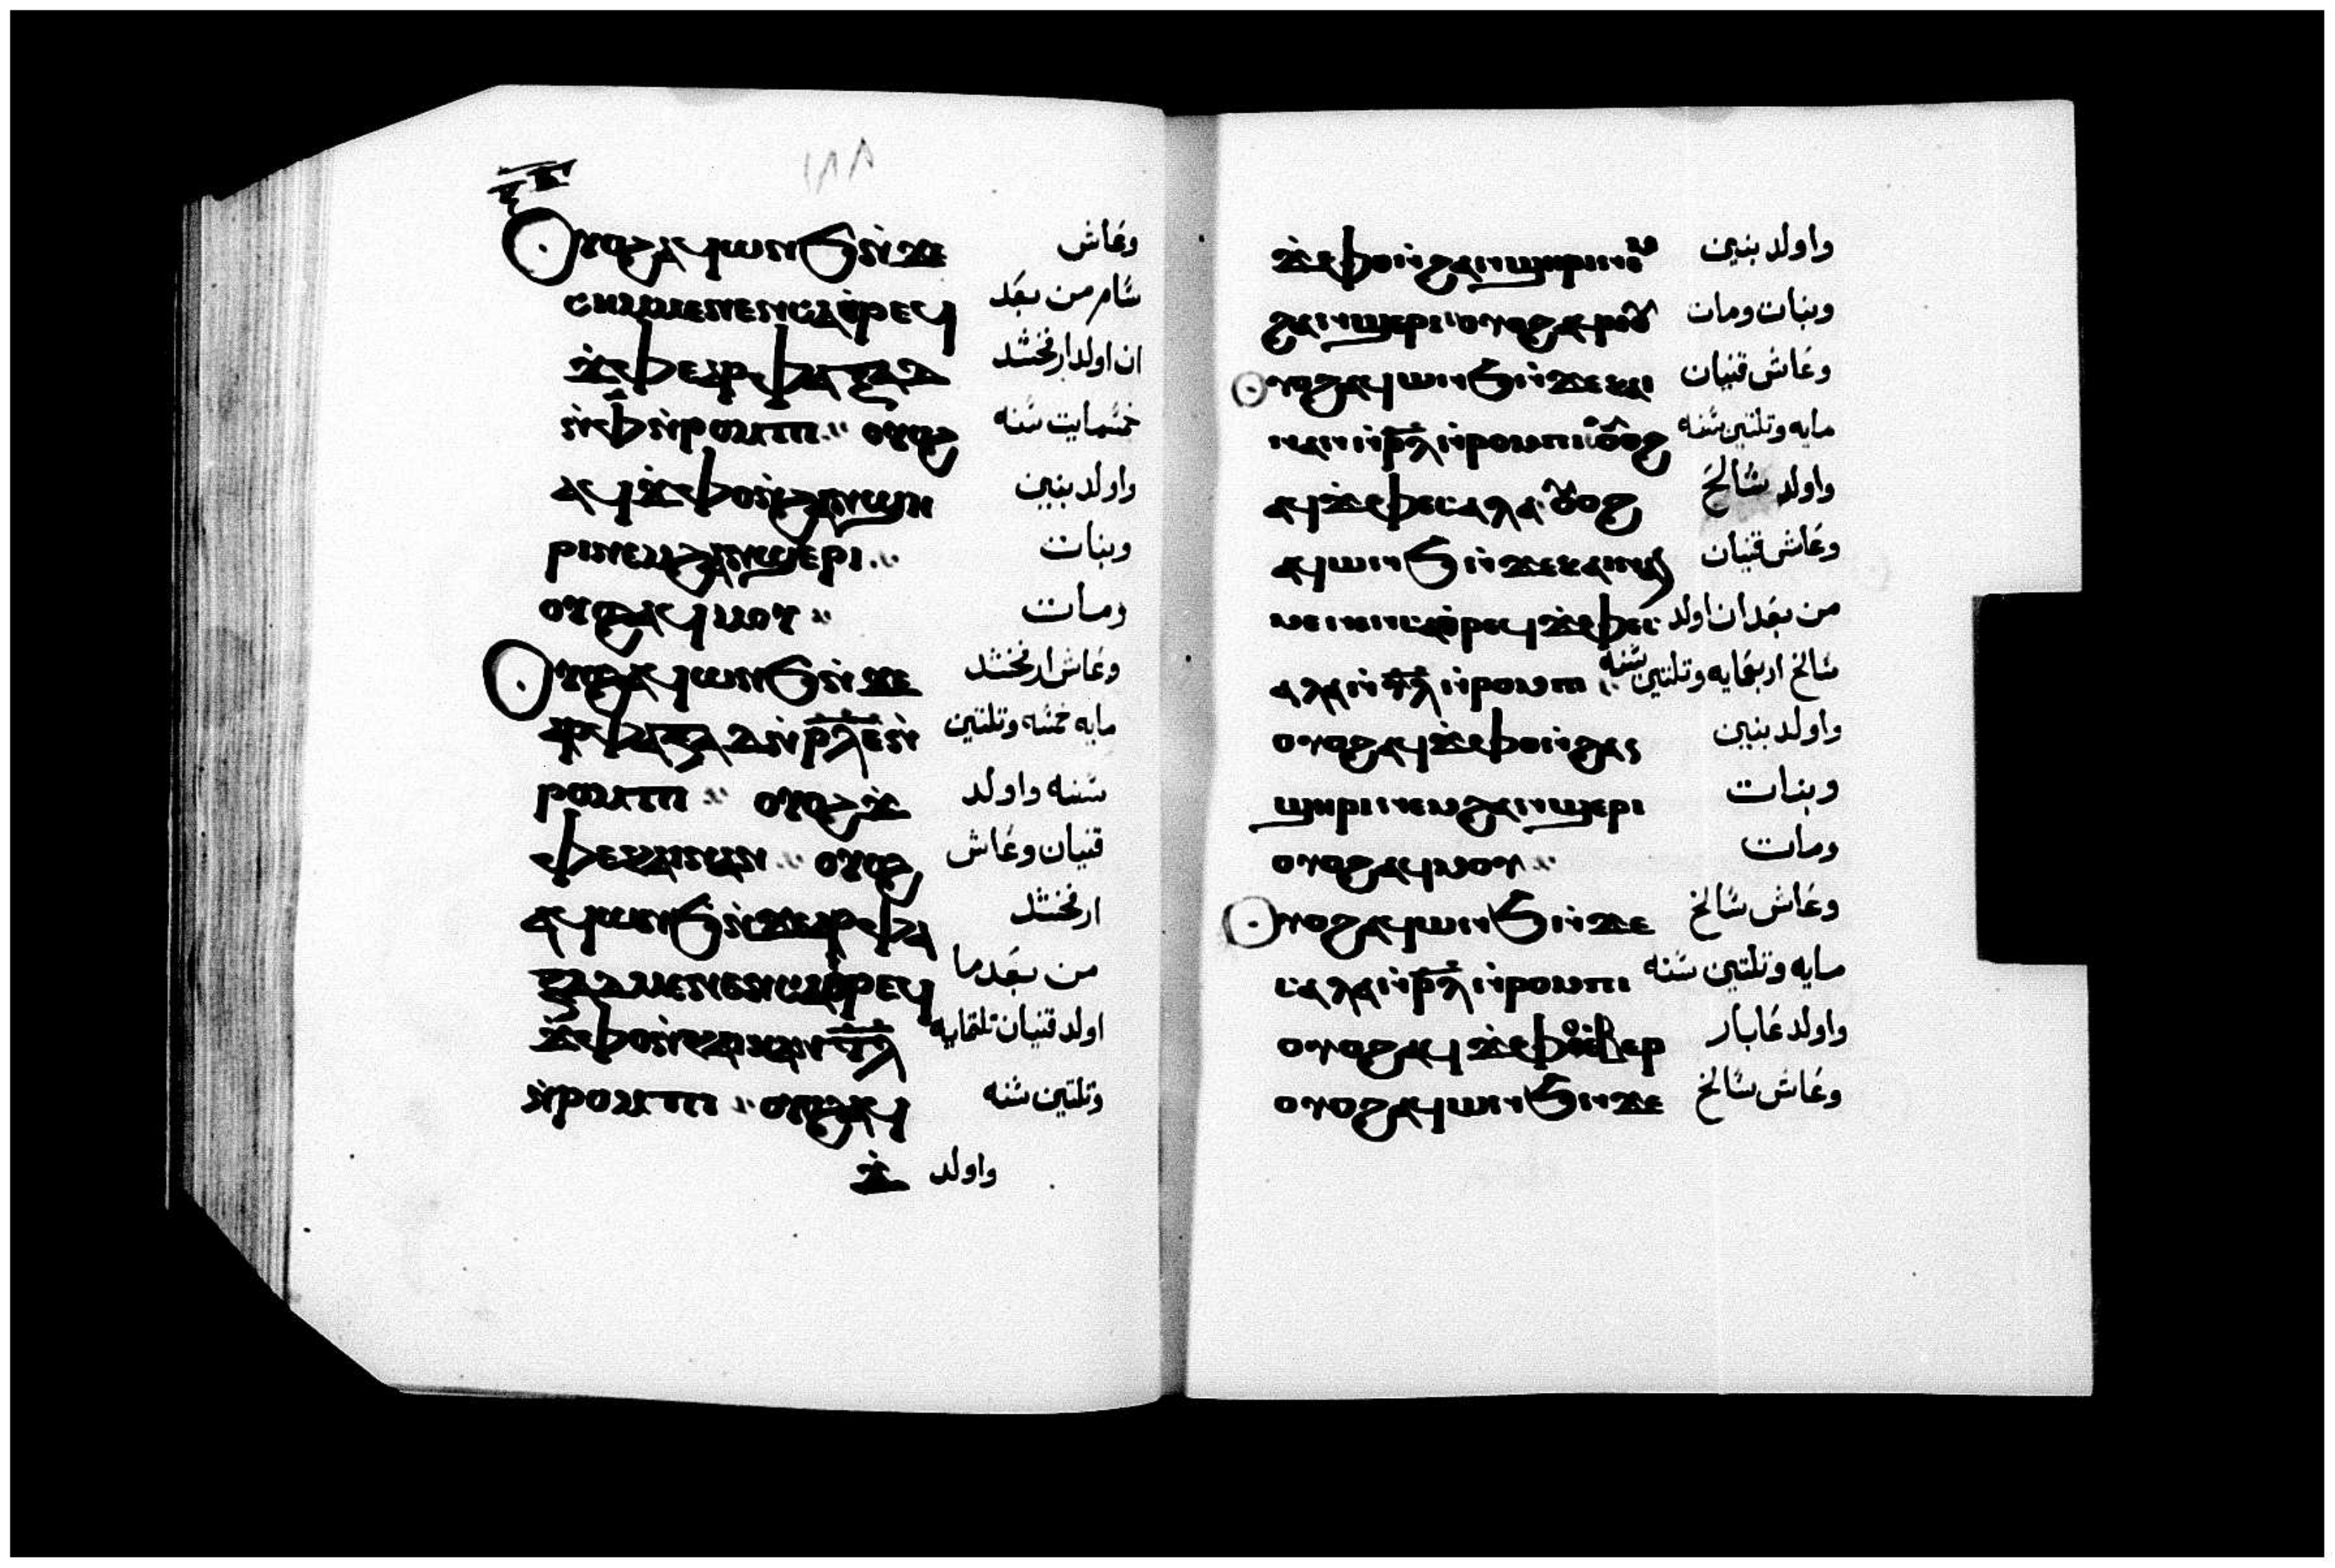 ١٨٨
ⲟⲩⲟϩ ⲁϥⲱⲛϧ ⲛ̀ϫⲉ وعاش
ⲥⲏⲙ ⲙⲉⲛⲉⲛⲥⲁ ⲑ̀ⲣⲉϥ سام من بعد
ϫ̀ⲫⲉ ⲁⲣⲫⲁⲝⲁⲇ ان اولد ارفخشد
ⲛ̀ⲫ̄ ⲛ̀ⲣⲟⲙⲡⲓ ⲟⲩⲟϩ خمسمايت سنه
ⲁϥϫ̀ⲫⲟ ⲛ̀ϩⲁⲛϣⲏ واولد بنين
ⲣⲓ ⲛⲉⲙ ϩⲁⲛϣⲉⲣⲓ وبنات
ⲟⲩⲟϩ ⲁϥⲙⲟⲩ ومات
ⲟⲩⲟϩ ⲁϥⲱⲛϧ ⲛ̀ϫⲉ وعاش ارفخشد
ⲁⲣⲫⲁⲝⲁⲇ ⲛ̀ⲣ̄ⲗ̄ⲉ̄ ⲛ̀ مايه خمسه وتلتين
ⲣⲟⲙⲡⲓ ⲟⲩⲟϩ ϫ̀ سنه واولد
ⲫⲉ ⲕⲁⲓⲛⲁⲛ ⲟⲩⲟϩ قنيان وعاش
ⲁϥⲱⲛϧ ⲛ̀ϫⲉ ⲁⲣⲫⲁ ارفخشد
ⲝⲁⲇ ⲙⲉⲛⲉⲛⲥⲁ ⲑ̀ⲣⲉϥ من بعدما
ϫ̀ⲫⲟ ⲛ̀ⲕⲁⲓⲛⲁⲛ ⲛ̀ⲧ̄ⲗ̄ اولد قنيان تلتمايه
ⲛ̀ⲣⲟⲙⲡⲓ ⲟⲩⲟϩ ⲁϥ وتلتين سنه
ϫ̀ واولد
ϫ̀ⲫⲟ ⲛ̀ϩⲁⲛϣⲏⲣⲓ ⲛⲉⲙ واولد بنين
ϩⲁⲛϣⲉⲣⲓ ⲟⲩⲟϩ ⲁϥⲙⲟⲩ وبنات ومات
ⲟⲩⲟϩ ⲁϥⲱⲛϧ ⲛ̀ϫⲉ ⲕⲁⲓ وعاش قنيان
ⲛⲁⲛ ⲛ̀ⲣ̄ⲗ̄ ⲛ̀ⲣⲟⲙⲡⲓ ⲟⲩⲟϩ مايه وتلتين سنه
ⲁϥϫ̀ⲫⲉ ⲥⲁⲗⲁ ⲟⲩⲟϩ واولد سالخ
ⲁϥⲱⲛϧ ⲛ̀ϫⲉ ⲕⲁⲓⲛⲁⲛ وعاش قنيان
ⲙⲉⲛⲉⲛⲥⲁ ⲑ̀ⲣⲉϥϫ̀ⲫⲉ ⲥ من بعد ان اولد
ⲁⲗⲁ ⲛ̀ⲧ̄ⲗ̄ ⲛ̀ⲣⲟⲙⲡⲓ سالخ اربعمايه وتلتين سنه
ⲟⲩⲟϩ ⲁϥϫ̀ⲫⲟ ⲛ̀ϩⲁⲛ واولد بنين
ϣⲏⲣⲓ ⲛⲉⲙ ϩⲁⲛϣⲉⲣⲓ وبنات
ⲟⲩⲟϩ ⲁϥⲙⲟⲩ ومات
ⲟⲩⲟϩ ⲁϥⲱⲛϧ ⲛ̀ϫⲉ وعاش سالخ
ⲥⲁⲗⲁ ⲛ̀ⲣ̄ⲗ̄ ⲛ̀ⲣⲟⲙⲡⲓ مايه وتلتين سنه
ⲟⲩⲟϩ ⲁϥϫ̀ⲫⲟ ⲛ̀ⲉⲃⲉⲣ واولد عابار
ⲟⲩⲟϩ ⲁϥⲱⲛϧ ⲛ̀ϫⲉ وعاش سالخ